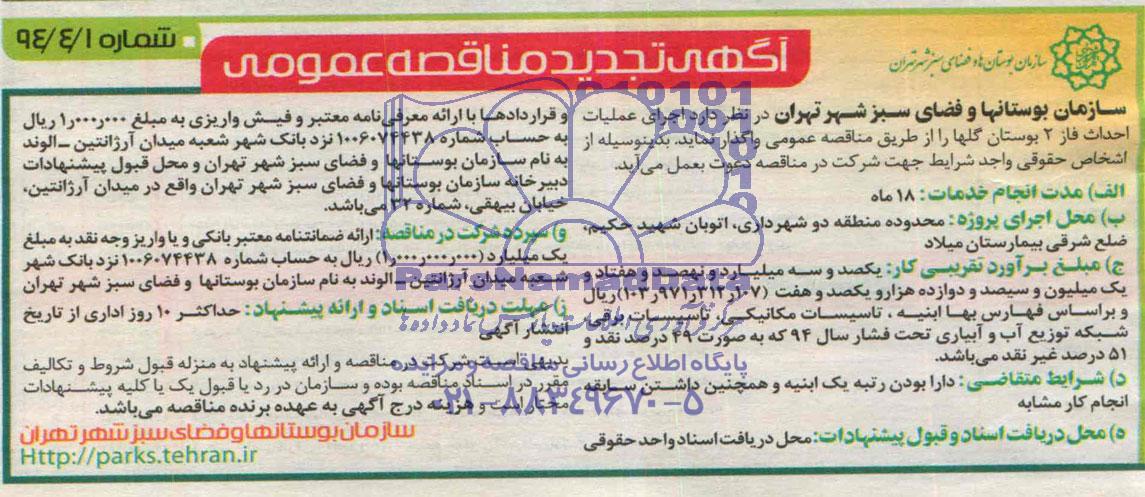 شماره ۹۴/۴/۱
آگهی تجدید مناقصه عمومی
سازمان بوستان‌ها و فضای سبز شهر تهران
سازمان بوستانها و فضای سبز شهر تهران در نظر دارد اجرای عملیات
احداث فاز ۲ بوستان گلها را از طریق مناقصه عمومی واگذار نماید. بدینوسیله از
اشخاص حقوقی واجد شرایط جهت شرکت در مناقصه دعوت بعمل می‌آید.
الف) مدت انجام خدمات: ۱۸ ماه
ب) محل اجرای پروژه: محدوده منطقه دو شهرداری، اتوبان شهید حکیم،
ضلع شرقی بیمارستان میلاد
ج) مبلغ برآورد تقریبی کار: یکصد و سه میلیارد و نهصد و هفتاد و
یک میلیون و سیصد و دوازده هزار و یکصد و هفت (۱۰۳ر۹۷۱ر۳۱۲ر۱۰۷) ریال
و براساس فهارس بها ابنیه، تاسیسات مکانیکی، تاسیسات برقی،
شبکه توزیع آب و آبیاری تحت فشار سال ۹۴ که به صورت ۴۹ درصد نقد و
۵۱ درصد غیر نقد می‌باشد.
د) شرایط متقاضی: دارا بودن رتبه یک ابنیه و همچنین داشتن سابقه
انجام کار مشابه
ه) محل دریافت اسناد و قبول پیشنهادات: محل دریافت اسناد واحد حقوقی
و قراردادها با ارائه معرفی‌نامه معتبر و فیش واریزی به مبلغ ۱ر۰۰۰ر۰۰۰ ریال
به حساب شماره ۱۰۰۶۰۷۴۴۳۸ نزد بانک شهر شعبه میدان آرژانتین - الوند
به نام سازمان بوستانها و فضای سبز شهر تهران و محل قبول پیشنهادات
دبیرخانه سازمان بوستانها و فضای سبز شهر تهران واقع در میدان آرژانتین،
خیابان بیهقی، شماره ۳۲ می‌باشد.
و) سپرده شرکت در مناقصه: ارائه ضمانتنامه معتبر بانکی و یا واریز وجه نقد به مبلغ
یک میلیارد (۱ر۰۰۰ر۰۰۰ر۰۰۰) ریال به حساب شماره ۱۰۰۶۰۷۴۴۳۸ نزد بانک شهر
شعبه میدان آرژانتین - الوند به نام سازمان بوستانها و فضای سبز شهر تهران
ز) مهلت دریافت اسناد و ارائه پیشنهاد: حداکثر ۱۰ روز اداری از تاریخ
انتشار آگهی
بدیهی است شرکت در مناقصه و ارائه پیشنهاد به منزله قبول شروط و تکالیف
مقرر در اسناد مناقصه بوده و سازمان در رد یا قبول یک یا کلیه پیشنهادات
مختار است و هزینه درج آگهی به عهده برنده مناقصه می‌باشد.
سازمان بوستانها و فضای سبز شهر تهران
Http://parks.tehran.ir
پایگاه اطلاع رسانی مناقصه و مزایده
۰۲۱-۸۸۳۴۹۶۷۰-۵